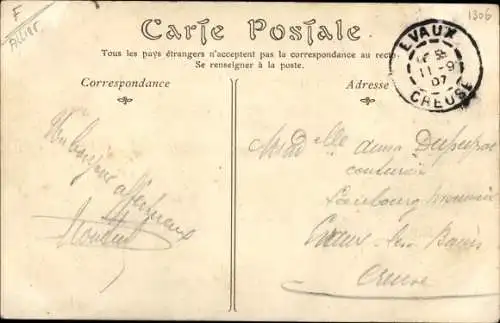 F
Allier
1306
Carte Postale
Tous les pays étrangers n'acceptent pas la correspondance au recto
Se renseigner à la poste.
EVAUX
11-9
07
CREUSE
Correspondance
Adresse
Un
affectueux
Melle Anna
couturière
Faubourg
Evaux-les-Bains
Creuse